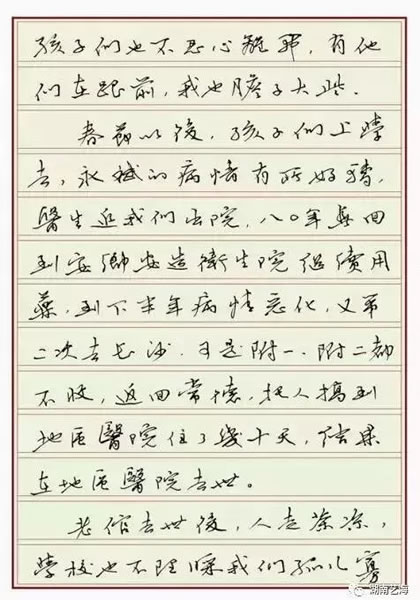 孩子们也不忍心離开，有他
们在跟前，我也膽子大些．
春莭以後，孩子们上學
去，永斌的病情有所好轉，
醫生迫我们出院，八〇年春回
到安鄉安造衛生院继續用
藥，到下半年病情恶化，又第
二次去长沙．可是附一．附二都
不收，返回常德，托人搞到
地區醫院住了幾十天，结果
在地區醫院去世。
老信去世後，人走茶凉，
學校也不理睬我们孤儿寡
湖南艺海